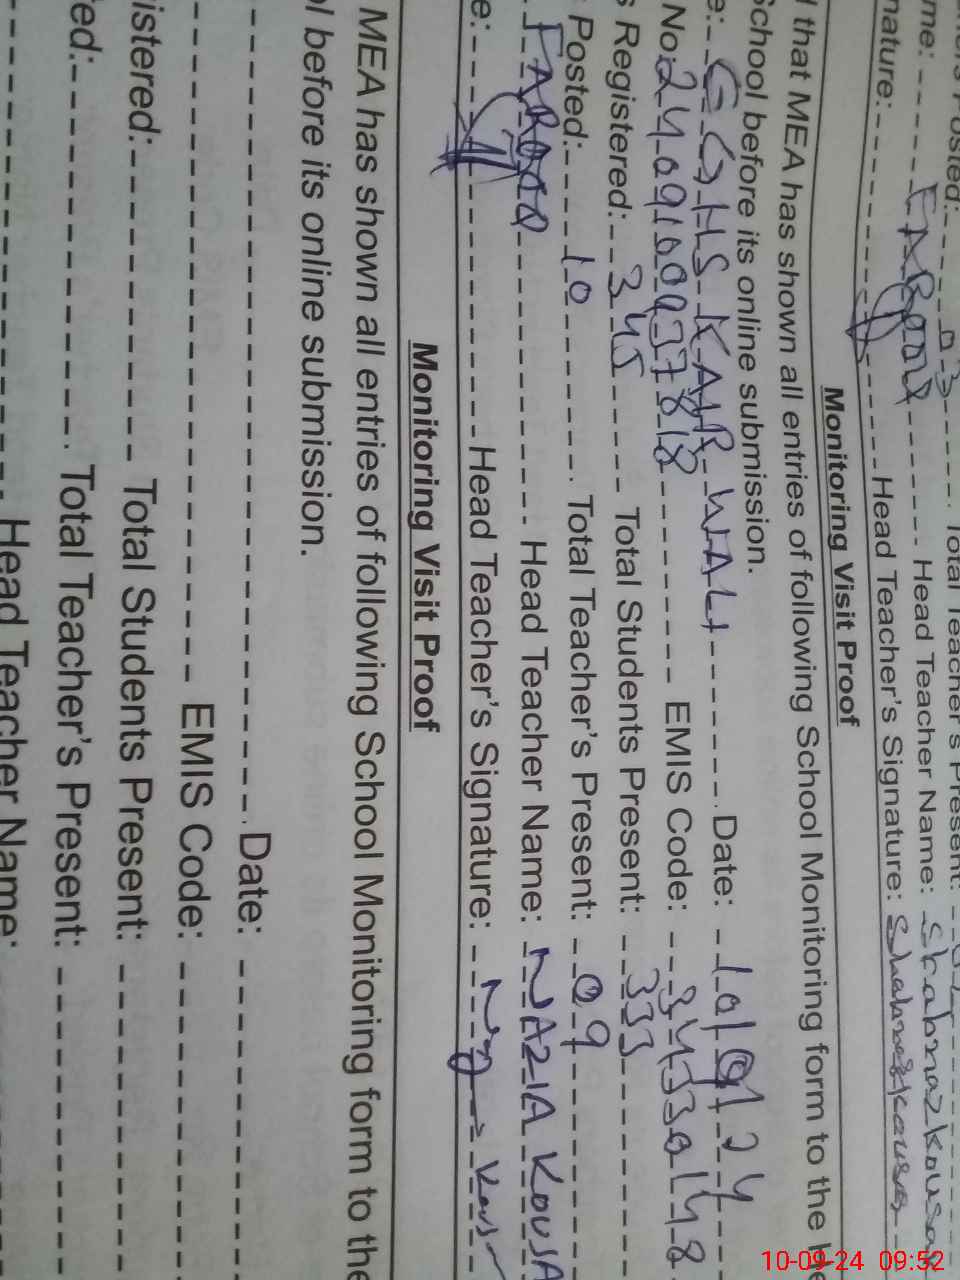 Posted: 03 Total Teacher's Present:
me: FAROOQ Head Teacher Name: Shahnaz kousar
nature: Head Teacher's Signature:
Monitoring Visit Proof
that MEA has shown all entries of following School Monitoring form to the He
School before its online submission.
e: GGHS KAHR WALI Date: 10/09/24
No: 2409100937818 EMIS Code: 34330148
s Registered: 345 Total Students Present: 333
Posted: 10 Total Teacher's Present: 09
FAROOQ Head Teacher Name: NAZIA KOUSA
e: Head Teacher's Signature:
Monitoring Visit Proof
MEA has shown all entries of following School Monitoring form to the
ol before its online submission.
Date:
EMIS Code:
istered: Total Students Present:
ted: Total Teacher's Present:
Head Teacher Name:
10-09-24 09:52